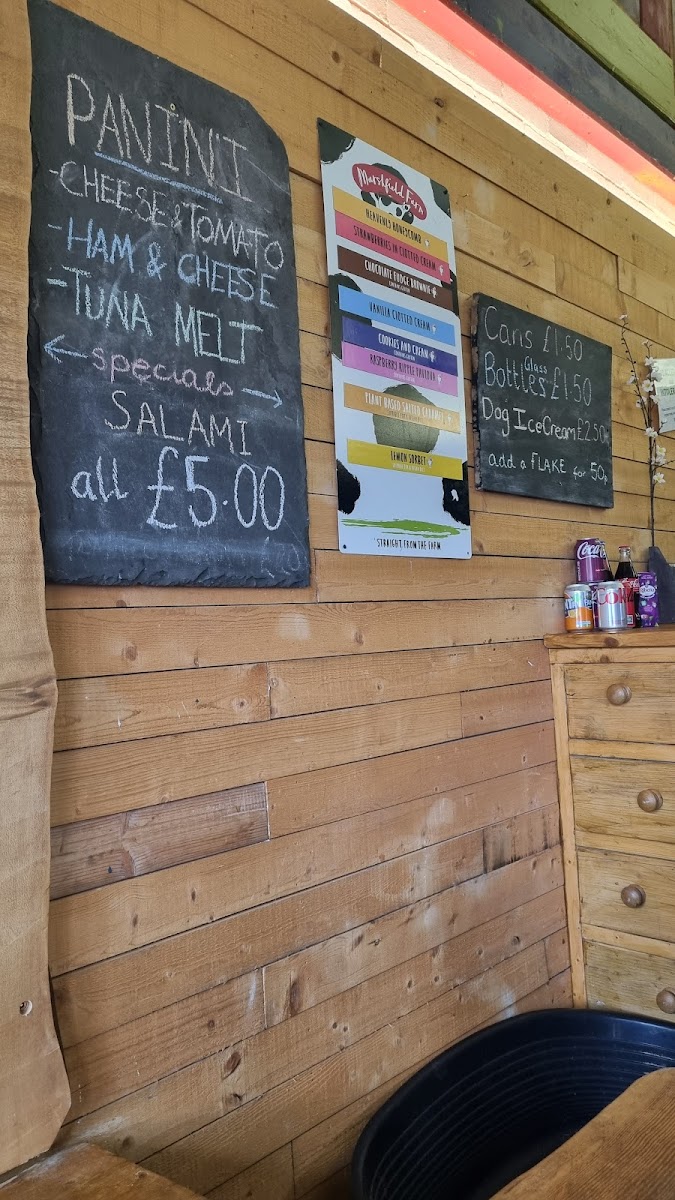 PANINI
-CHEESE & TOMATO
-HAM & CHEESE
-TUNA MELT
specials
SALAMI
all £5.00
Marshfield Farm
HEAVENLY HONEYCOMB
STRAWBERRIES IN CLOTTED CREAM
CHOCOLATE FUDGE BROWNIE
VANILLA CLOTTED CREAM
COOKIES AND CREAM
RASPBERRY RIPPLE PAVLOVA
PLANT BASED SALTED CARAMEL
LEMON SORBET
STRAIGHT FROM THE FARM
Cans £1.50
Glass
Bottles £1.50
Dog IceCream £2.50
add a FLAKE for 50p